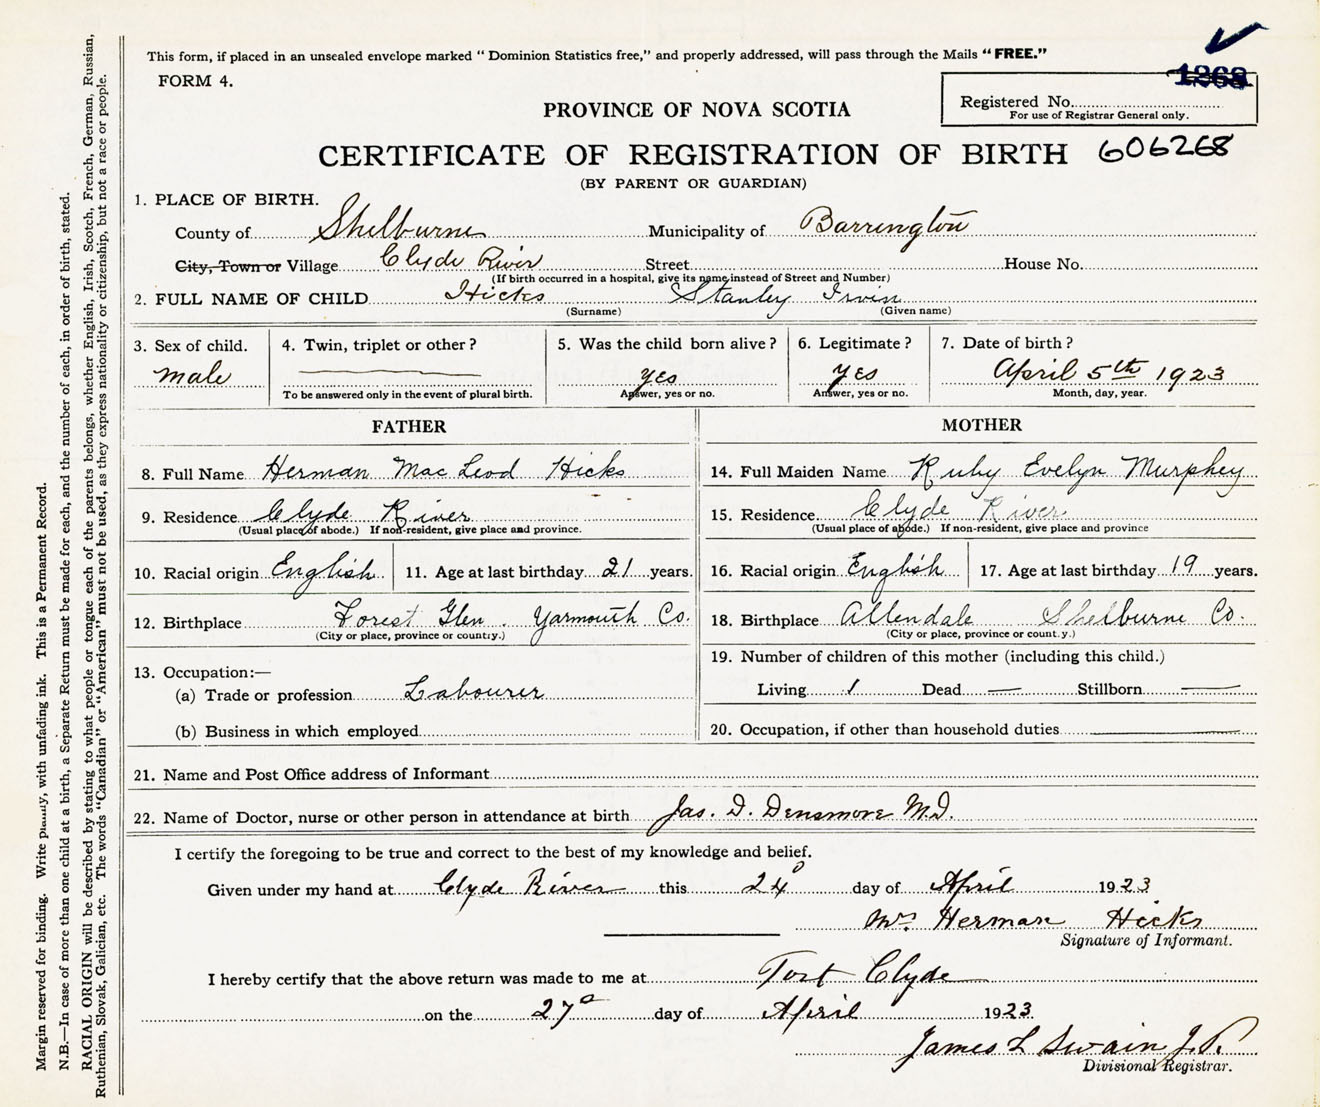 This form, if placed in an unsealed envelope marked " Dominion Statistics free," and properly addressed, will pass through the Mails "FREE."
FORM 4.
1268
Registered No.
For use of Registrar General only.
PROVINCE OF NOVA SCOTIA
CERTIFICATE OF REGISTRATION OF BIRTH 606268
(BY PARENT OR GUARDIAN)
1. PLACE OF BIRTH.
County of Shelburne Municipality of Barrington
City, Town or Village Clyde River Street House No.
(If birth occurred in a hospital, give its name instead of Street and Number)
2. FULL NAME OF CHILD Hicks Stanley Irvin
(Surname) (Given name)
3. Sex of child. 4. Twin, triplet or other? 5. Was the child born alive? 6. Legitimate? 7. Date of birth?
male yes yes April 5th 1923
To be answered only in the event of plural birth. Answer, yes or no. Answer, yes or no. Month, day, year.
FATHER MOTHER
8. Full Name Herman Mac Leod Hicks 14. Full Maiden Name Ruby Evelyn Murphey
9. Residence Clyde River 15. Residence Clyde River
(Usual place of abode.) If non-resident, give place and province. (Usual place of abode.) If non-resident, give place and province
10. Racial origin English 11. Age at last birthday 21 years. 16. Racial origin English 17. Age at last birthday 19 years.
12. Birthplace Forest Glen. Yarmouth Co. 18. Birthplace Allendale Shelburne Co.
(City or place, province or county.) (City or place, province or county.)
13. Occupation:— 19. Number of children of this mother (including this child.)
(a) Trade or profession Labourer Living 1 Dead — Stillborn —
(b) Business in which employed 20. Occupation, if other than household duties
21. Name and Post Office address of Informant
22. Name of Doctor, nurse or other person in attendance at birth Jas. D. Densmore M.D.
I certify the foregoing to be true and correct to the best of my knowledge and belief.
Given under my hand at Clyde River this 24 day of April 1923
Mrs. Herman Hicks
Signature of Informant.
I hereby certify that the above return was made to me at Port Clyde
on the 27 day of April 1923
James L Swain J.P.
Divisional Registrar.
Margin reserved for binding. Write plainly, with unfading ink. This is a Permanent Record.
N.B.—In case of more than one child at a birth, a Separate Return must be made for each, and the number of each, in order of birth, stated.
RACIAL ORIGIN will be described by stating to what people or tongue each of the parents belongs, whether English, Irish, Scotch, French, German, Russian,
Ruthenian, Slovak, Galician, etc. The words "Canadian" or "American" must not be used, as they express nationality or citizenship, but not a race or people.